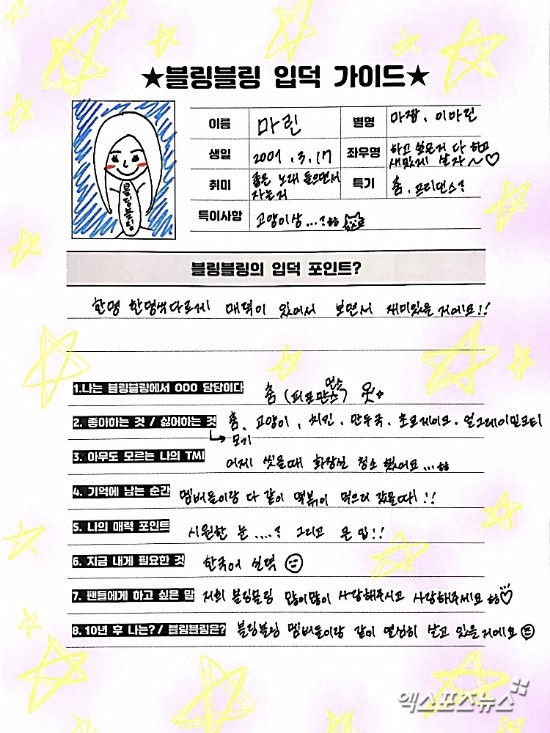 ★블링블링 입덕 가이드★
블링블링
이름 마린 별명 마짱, 이마린
생일 2001.3.17 좌우명 하고 싶은거 다 하고 새맑게 살자~♡
취미 좋은 노래 들으면서 자는거 특기 춤, 프리댄스?
특이사항 고양이상...?ㅎㅎ
블링블링의 입덕 포인트?
한명 한명색다르게 매력이 있어서 보면서 재미있을거에요!!
1.나는 블링블링에서 OOO 담당이다 춤 (퍼포먼스) 옷
2. 좋아하는 것 / 싫어하는 것 춤, 고양이, 치킨, 만두국, 초코케이크, 얼그레이밀크티
↳ 모기
3. 아무도 모르는 나의 TMI 어제 씻을때 화장실 청소 했어요...ㅎㅎ
4. 기억에 남는 순간 멤버들이랑 다 같이 떡볶이 먹으러 갔을때!!
5. 나의 매력 포인트 시원한 눈....? 그리고 큰 입!!
6. 지금 내게 필요한 것 한국어 실력
7. 팬들에게 하고 싶은 말 저희 블링블링 많이많이 사랑해주시고 사랑해주세요 ㅎㅎ♡
8. 10년 후 나는? / 블링블링은? 블링블링 멤버들이랑 같이 열심히 살고 있을거에요
엑스포츠뉴스